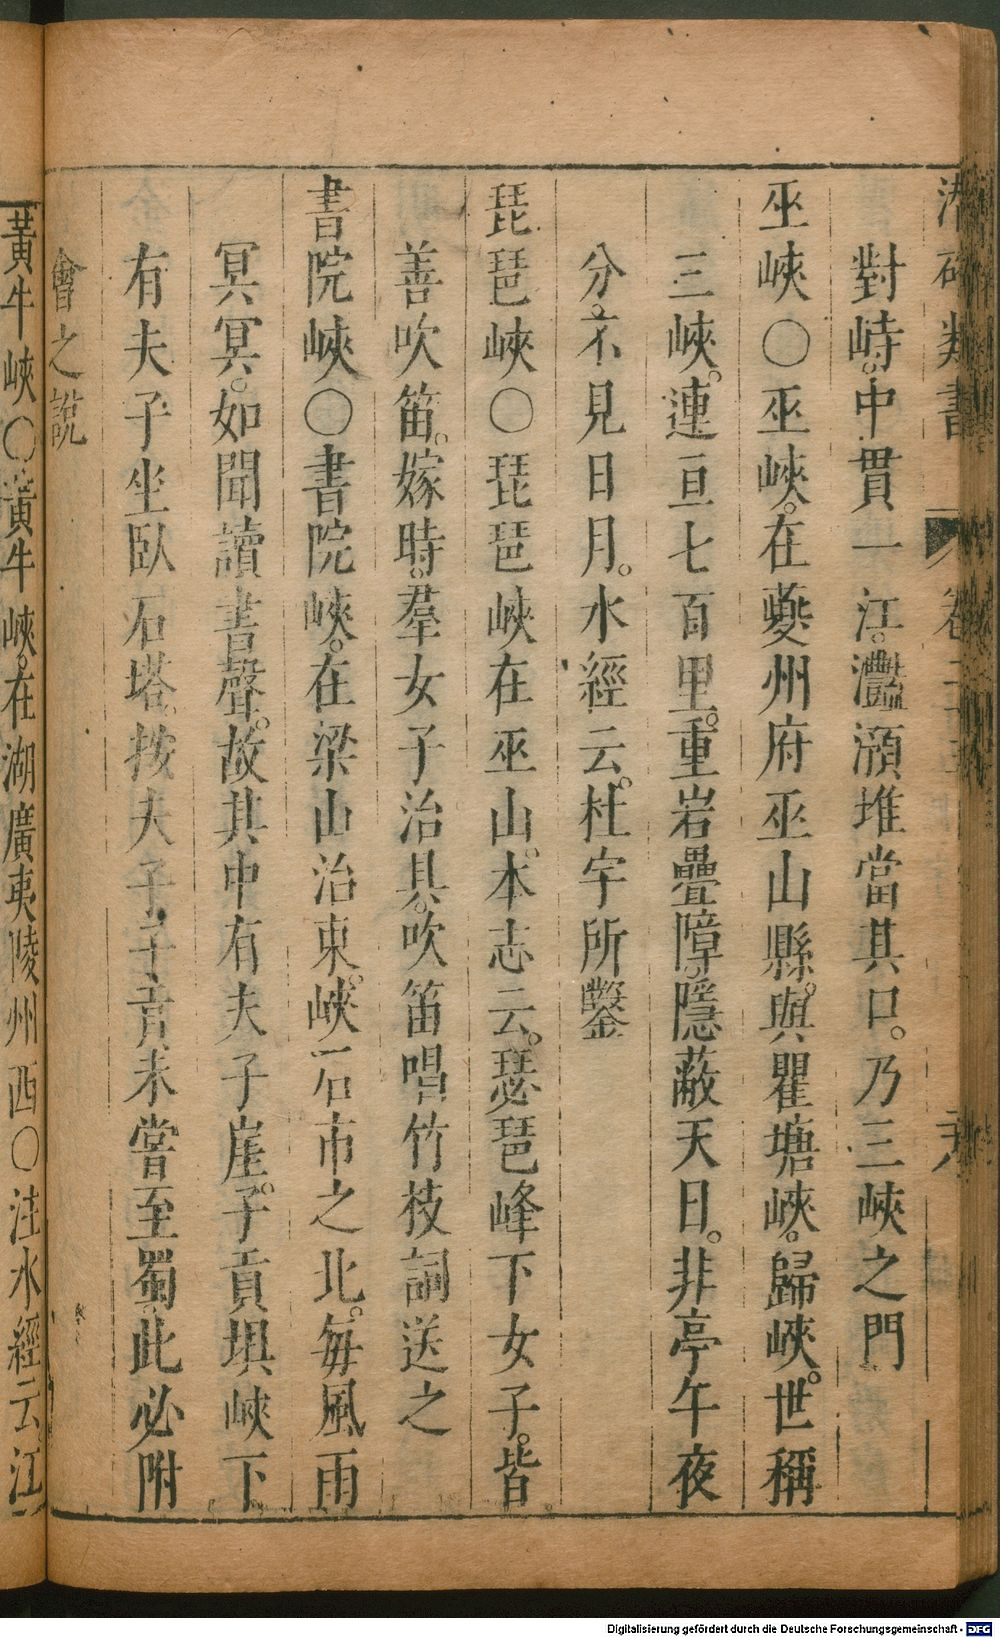 潜確類書 卷二十五
對峙。中貫一江。灩澦堆當其口。乃三峽之門
巫峽〇巫峽。在夔州府巫山縣。與瞿塘峽。歸峽。世稱
三峽。連亘七百里。重岩疊障。隱蔽天日。非亭午夜
分不見日月。水經云。杜宇所鑿
琵琶峽〇琵琶峽在巫山。本志云。琵琶峰下女子。皆
善吹笛。嫁時。羣女子治具。吹笛唱竹枝詞送之
書院峽〇書院峽。在梁山治東。峽石市之北。每風雨
冥冥。如聞讀書聲。故其中有夫子崖。子貢埧峽下
有夫子坐臥石塔。按夫子子貢未嘗至蜀。此必附
會之說
黃牛峽〇黃牛峽。在湖廣夷陵州西〇注水經云。江
Digitalisierung gefördert durch die Deutsche Forschungsgemeinschaft - DFG